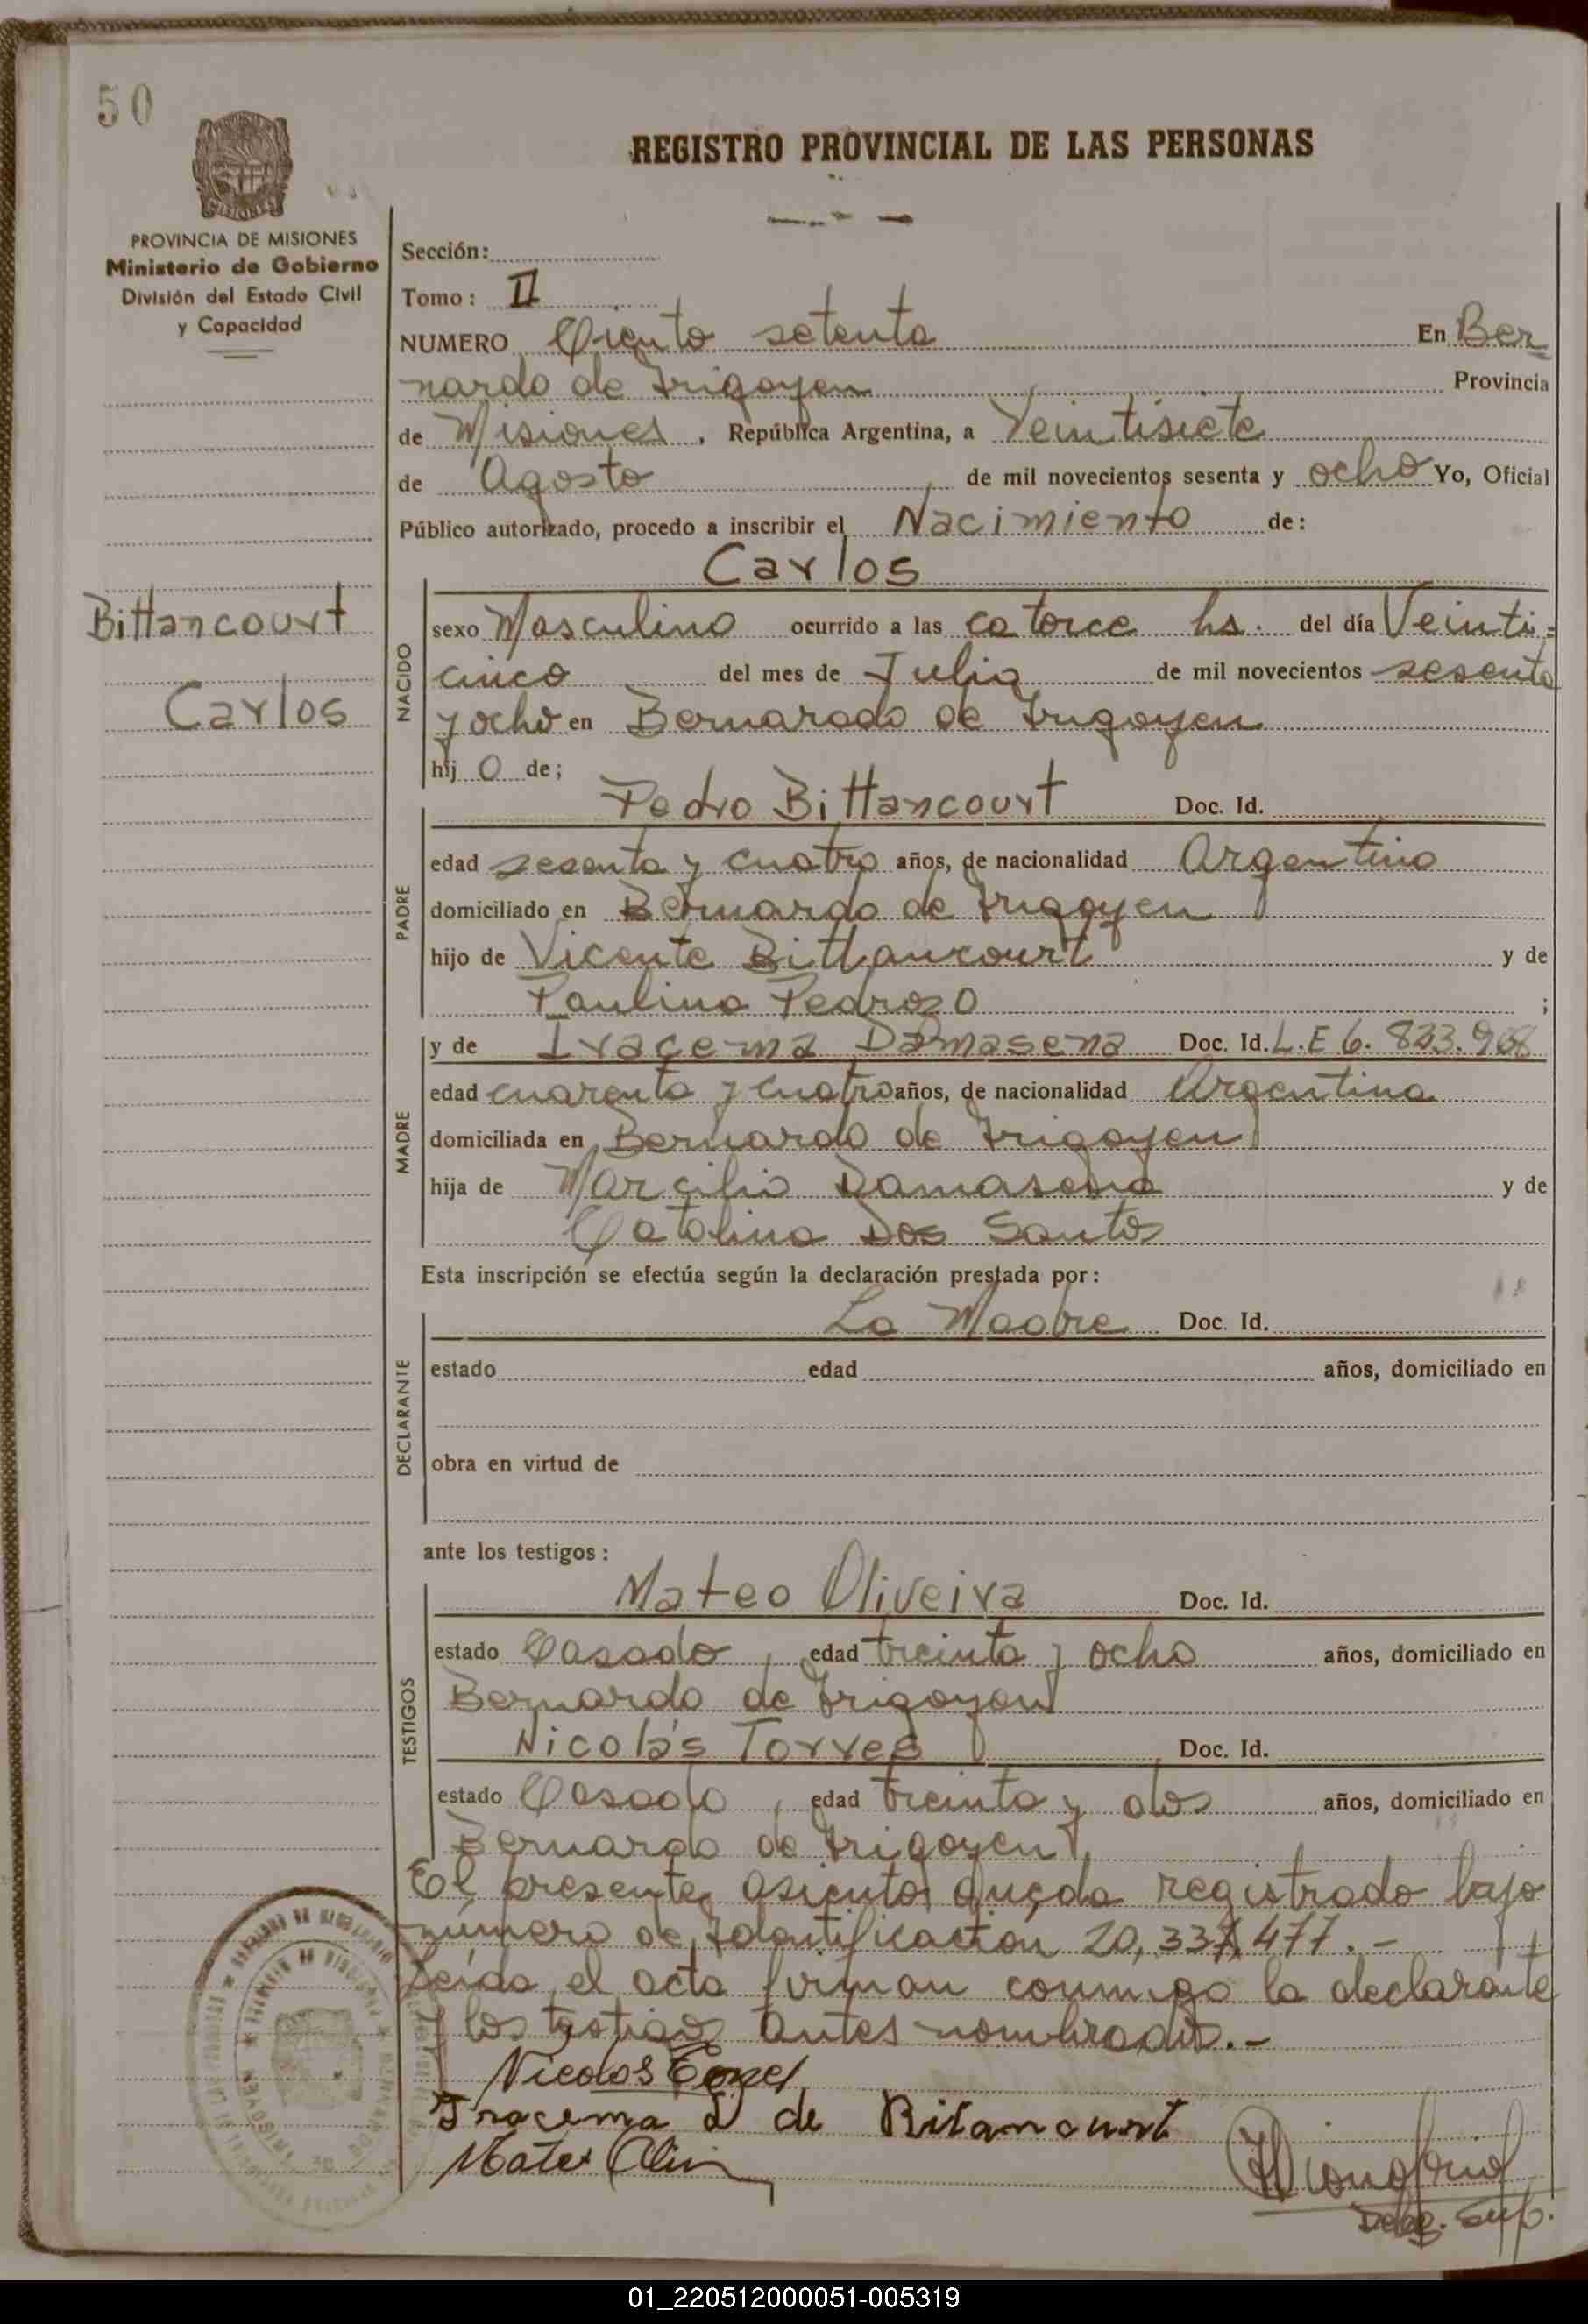 50
REGISTRO PROVINCIAL DE LAS PERSONAS
MISIONES
PROVINCIA DE MISIONES
Ministerio de Gobierno
División del Estado Civil
y Capacidad
Sección:
Tomo: II
NUMERO Ciento setenta En Ber=
nardo de Irigoyen Provincia
de Misiones, República Argentina, a Veintisiete
de Agosto de mil novecientos sesenta y ocho Yo, Oficial
Público autorizado, procedo a inscribir el Nacimiento de:
Carlos
Bittancourt
Carlos
NACIDO
sexo Masculino ocurrido a las catorce hs. del día Veinti=
cinco del mes de Julio de mil novecientos sesenta
y ocho en Bernarado de Irigoyen
hij o de;
PADRE
Pedro Bittancourt Doc. Id.
edad sesenta y cuatro años, de nacionalidad Argentino
domiciliado en Bernardo de Irigoyen
hijo de Vicente Bittancourt y de
Paulina Pedrozo ;
MADRE
y de Iracema Damasena Doc. Id. L.E 6.
edad cuarenta y cuatro años, de nacionalidad Argentina
domiciliada en Bernardo de Irigoyen
hija de Marcilio Damasena y de
Catalina Dos Santos
Esta inscripción se efectúa según la declaración prestada por:
DECLARANTE
La Madre Doc. Id.
estado edad años, domiciliado en
obra en virtud de
ante los testigos:
TESTIGOS
Mateo Oliveira Doc. Id.
estado Casado, edad treinta y ocho años, domiciliado en
Bernardo de Irigoyen
Nicolás Torres Doc. Id.
estado Casado, edad treinta y dos años, domiciliado en
Bernardo de Irigoyen
El presente asiento queda registrado bajo
número de Identificación 20,337,477.-
Leída el acta firman conmigo la declarante
y los testigos antes nombrados.-
Nicolas
Iracema D de Bitancourt
Mateo Olivi
Deleg. Sup.
01_220512000051-005319